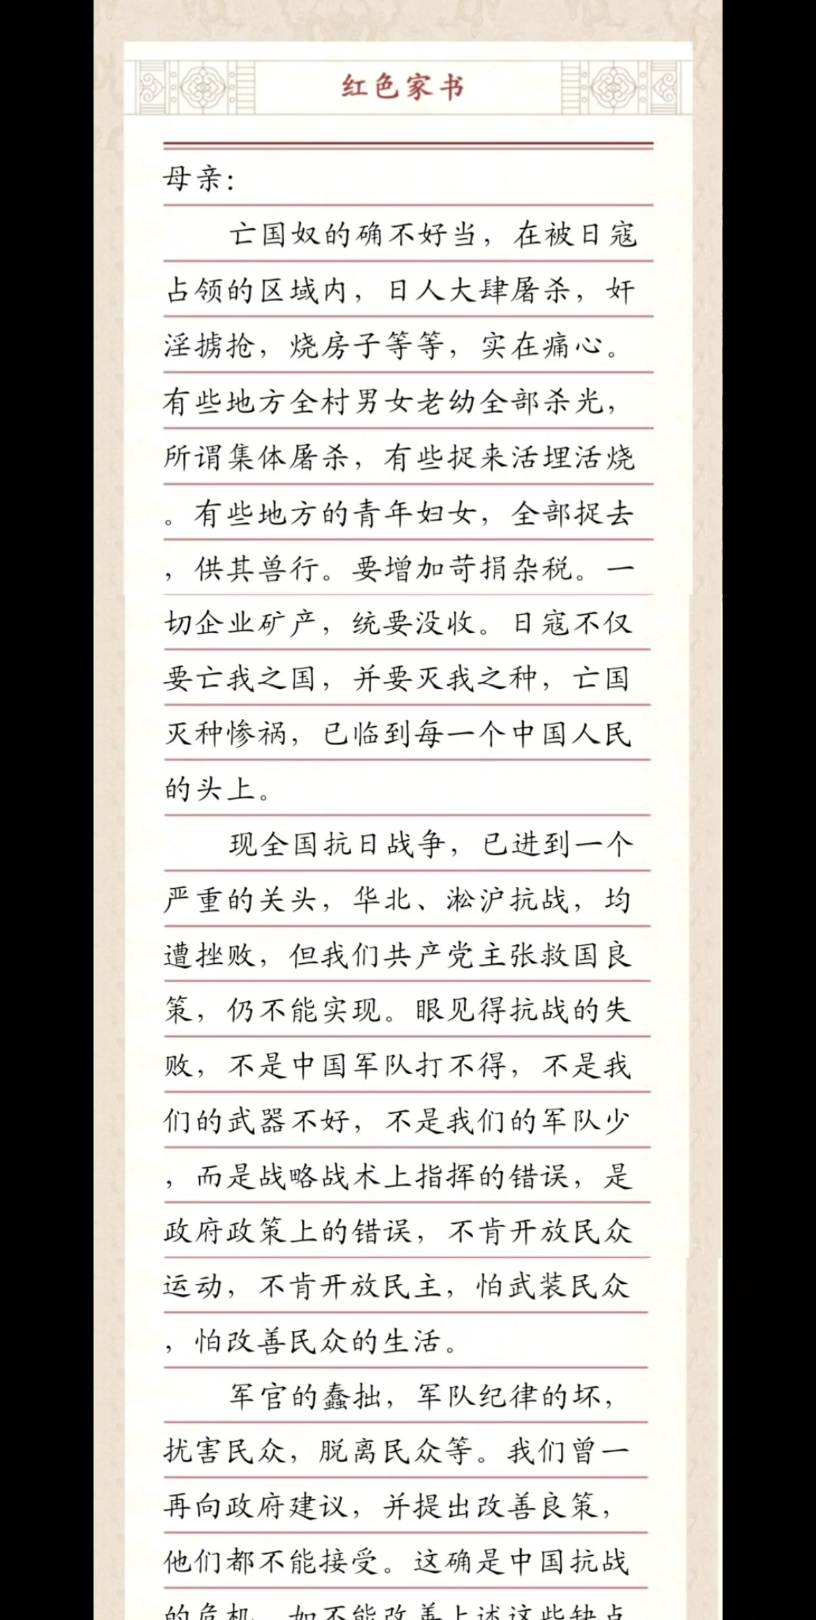 红色家书
母亲：
亡国奴的确不好当，在被日寇
占领的区域内，日人大肆屠杀，奸
淫掳抢，烧房子等等，实在痛心。
有些地方全村男女老幼全部杀光，
所谓集体屠杀，有些捉来活埋活烧
。有些地方的青年妇女，全部捉去
，供其兽行。要增加苛捐杂税。一
切企业矿产，统要没收。日寇不仅
要亡我之国，并要灭我之种，亡国
灭种惨祸，已临到每一个中国人民
的头上。
现全国抗日战争，已进到一个
严重的关头，华北、淞沪抗战，均
遭挫败，但我们共产党主张救国良
策，仍不能实现。眼见得抗战的失
败，不是中国军队打不得，不是我
们的武器不好，不是我们的军队少
，而是战略战术上指挥的错误，是
政府政策上的错误，不肯开放民众
运动，不肯开放民主，怕武装民众
，怕改善民众的生活。
军官的蠢拙，军队纪律的坏，
扰害民众，脱离民众等。我们曾一
再向政府建议，并提出改善良策，
他们都不能接受。这确是中国抗战
的危机，如不能改善上述这些缺点